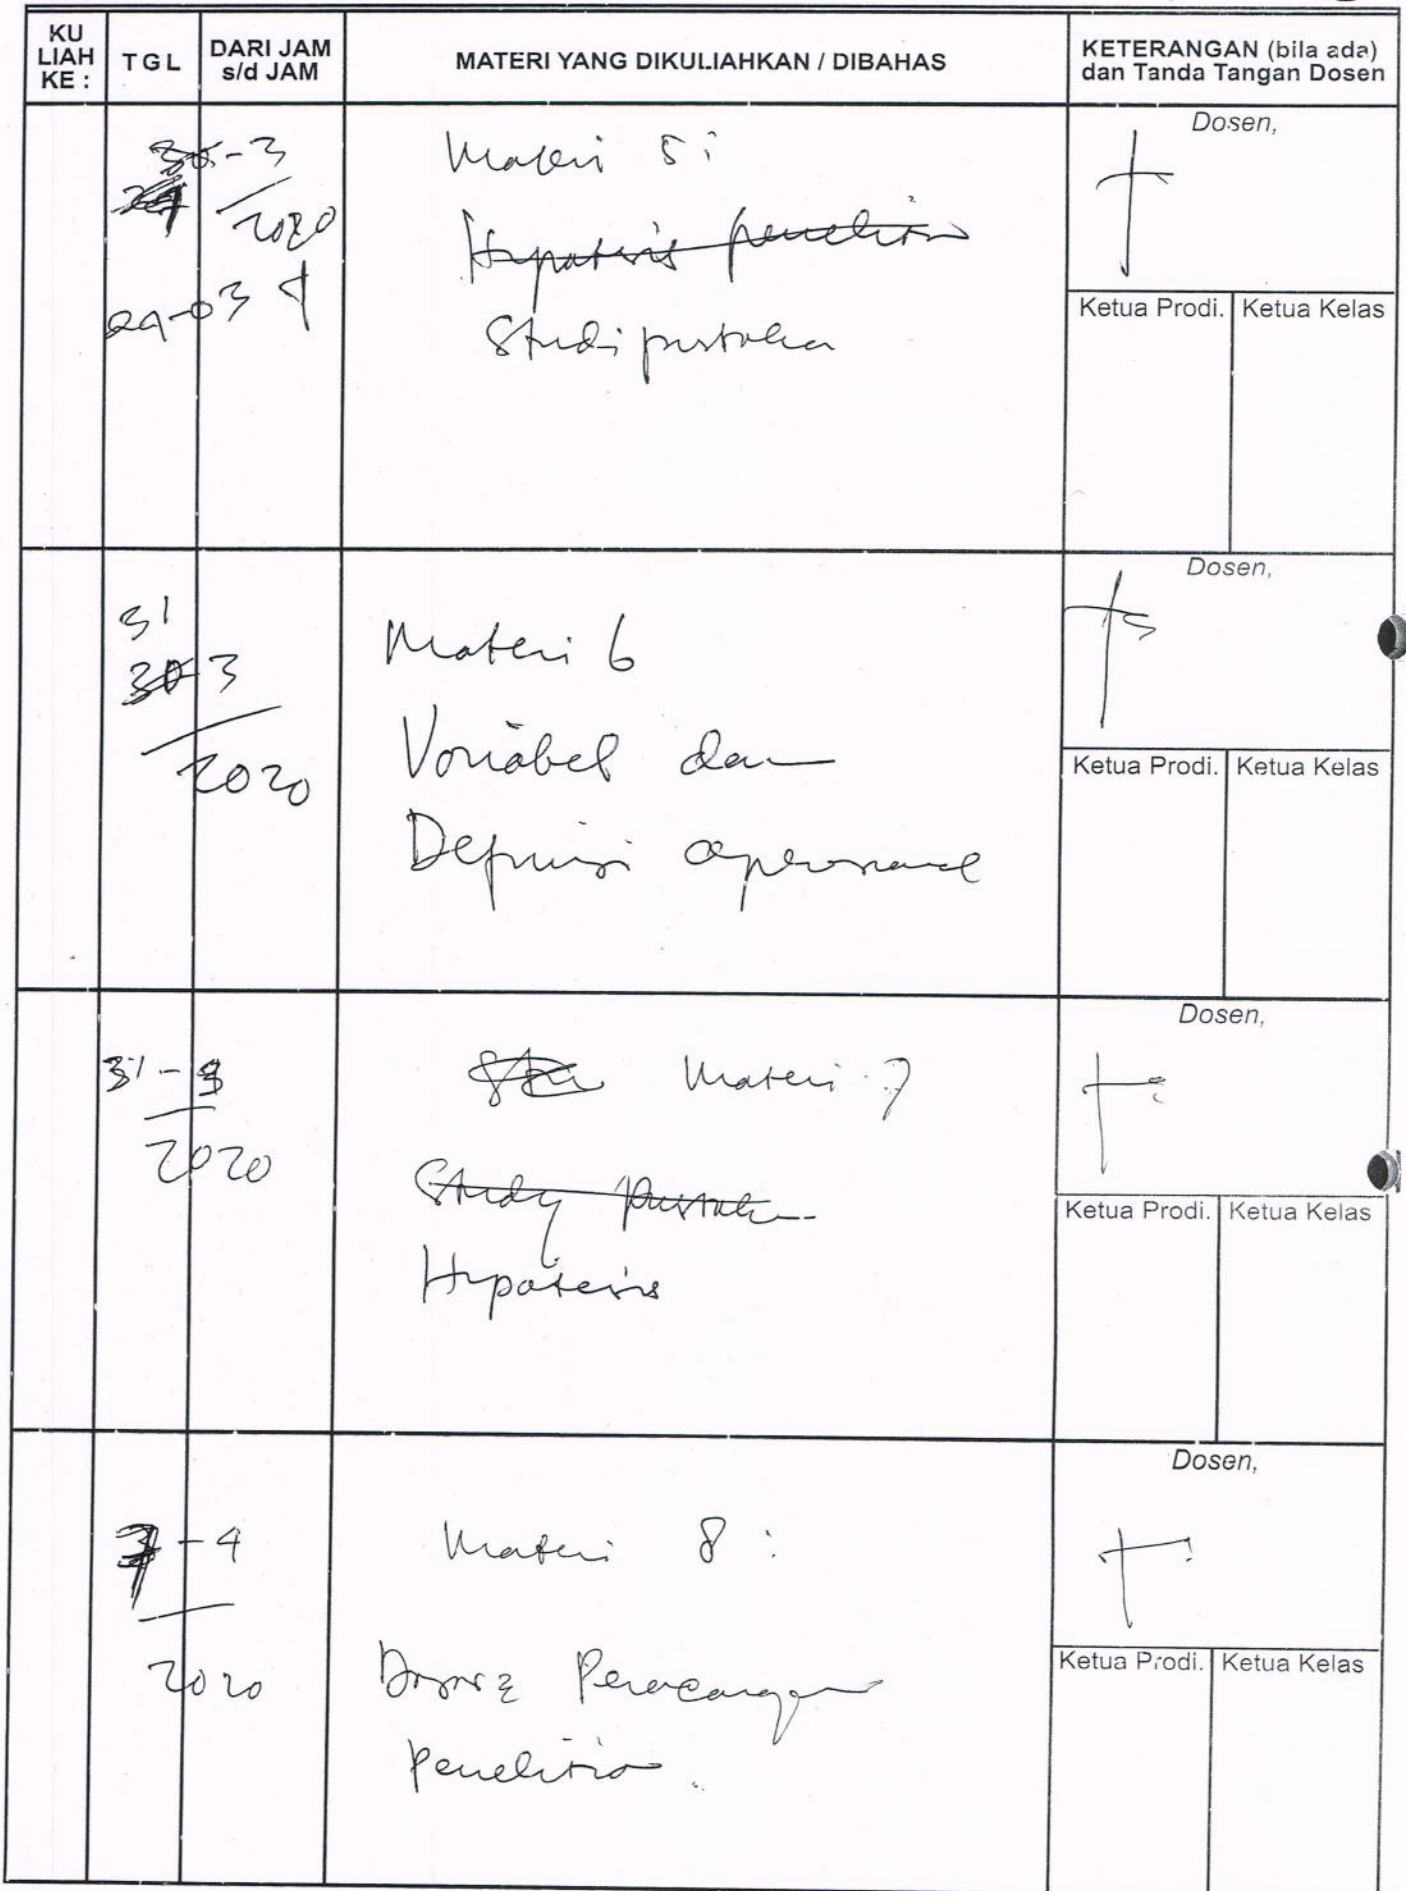 KU
LIAH
KE :
TGL
DARI JAM
s/d JAM
MATERI YANG DIKULIAHKAN / DIBAHAS
KETERANGAN (bila ada)
dan Tanda Tangan Dosen
30-3
2020
29-03
Materi 5 :
Hypotesis penelitian
Studi pustaka
Dosen,
Ketua Prodi. Ketua Kelas
31
30 3
2020
Materi 6
Variabel dan
Definisi operasional
Dosen,
Ketua Prodi. Ketua Kelas
31-3
2020
Materi 7
Study pustaka
Hypotesis
Dosen,
Ketua Prodi. Ketua Kelas
7-4
2020
Materi 8 :
Perancangan
Penelitian
Dosen,
Ketua Prodi. Ketua Kelas